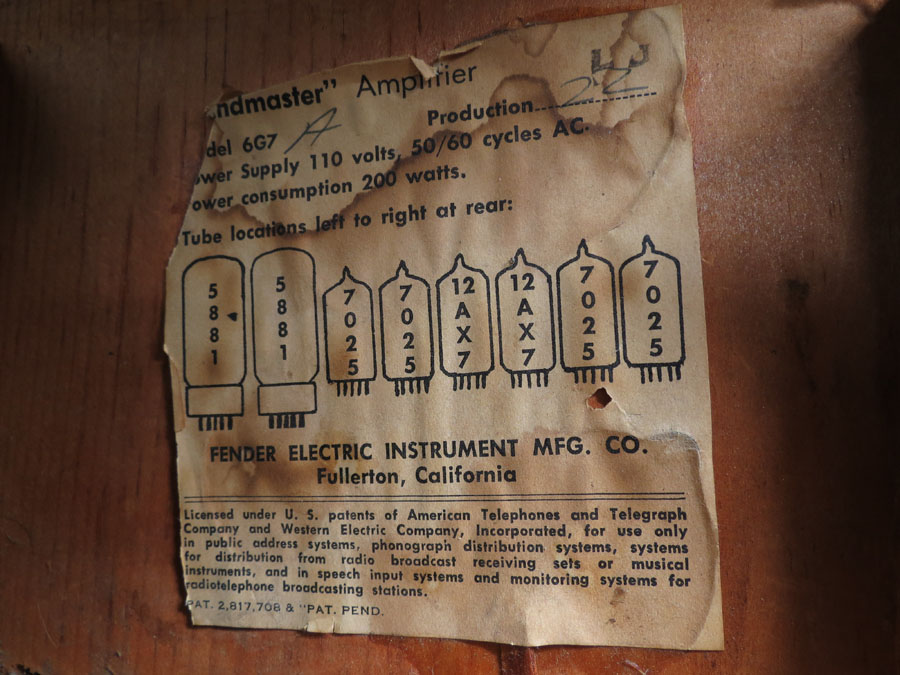 ndmaster" Amplifier
del 6G7 A Production 22
ower Supply 110 volts, 50/60 cycles AC.
ower consumption 200 watts.
Tube locations left to right at rear:
5881 5881 7025 7025 12AX7 12AX7 7025 7025
FENDER ELECTRIC INSTRUMENT MFG. CO.
Fullerton, California
Licensed under U. S. patents of American Telephones and Telegraph
Company and Western Electric Company, Incorporated, for use only
in public address systems, phonograph distribution systems, systems
for distribution from radio broadcast receiving sets or musical
instruments, and in speech input systems and monitoring systems for
radiotelephone broadcasting stations.
PAT. 2,817,708 & "PAT. PEND.